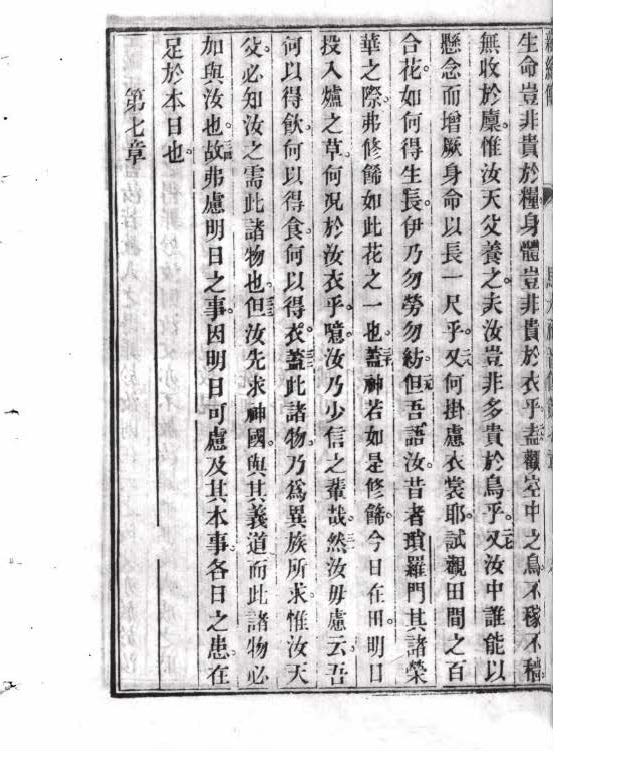 生命豈非貴於糧。身體豈非貴於衣乎。盍觀空中之鳥。不稼不穡。
無收於廩。惟汝天父養之。夫汝豈非多貴於鳥乎。又汝中誰能以
懸念而增厥身命以長一尺乎。又何掛慮衣裳耶。試觀田間之百
合花。如何得生長。伊乃勿勞勿紡。但吾語汝。昔者瑣羅門其諸榮
華之際。弗修篩如此花之一也。蓋神若如是修篩。今日在田。明日
投入爐之草。何況於汝衣乎。噫汝乃少信之輩哉。然汝毋慮云。吾
何以得飲。何以得食。何以得衣。蓋此諸物。乃為異族所求。惟汝天
父必知汝之需此諸物也。但汝先求神國。與其義道而此諸物必
加與汝也。故弗慮明日之事。因明日可慮及其本事。各日之患。在
足於本日也。
第七章